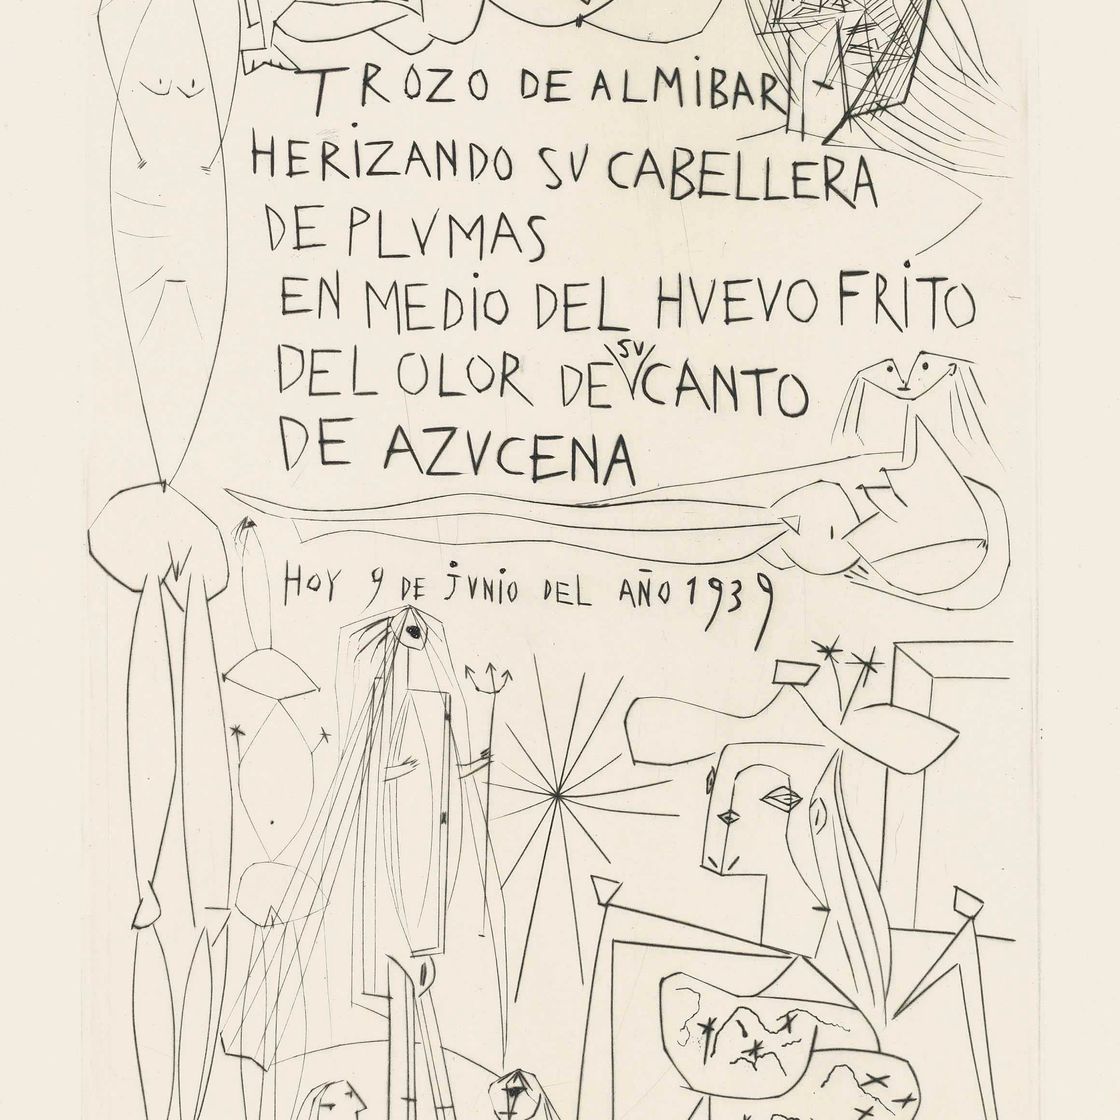 TROZO DE ALMiBAR
HERiZANDO SV CABELLERA
DE PLVMAS
EN MEDiO DEL HVEVO FRiTO
DEL OLOR DE SV CANTO
DE AZVCENA
HOY 9 DE jVNiO DEL AÑO 1939